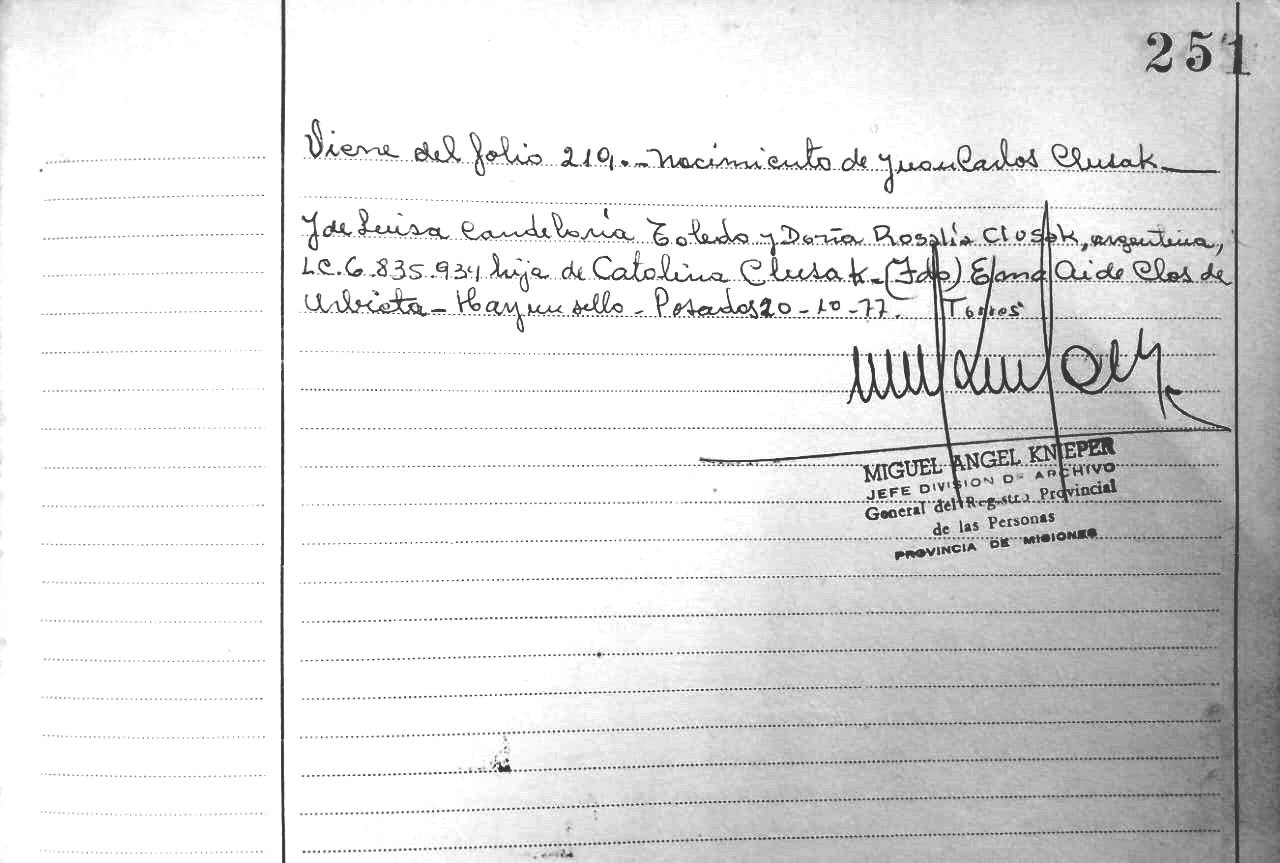 251
Viene del folio 219.- nacimiento de Juan Carlos Clusak
Y de Luisa Candeloria Toledo y Doña Rosalía Clusak, argentina,
L.C. 6.835.934 hija de Catolina Clusak-(Fdo) Elma Aide Clos de
Urbieta - Hay un sello - Posadas 20-10-77. Torres
MIGUEL ANGEL KNIEPER
JEFE DIVISION DE ARCHIVO
General del Registro Provincial
de las Personas
PROVINCIA DE MISIONES